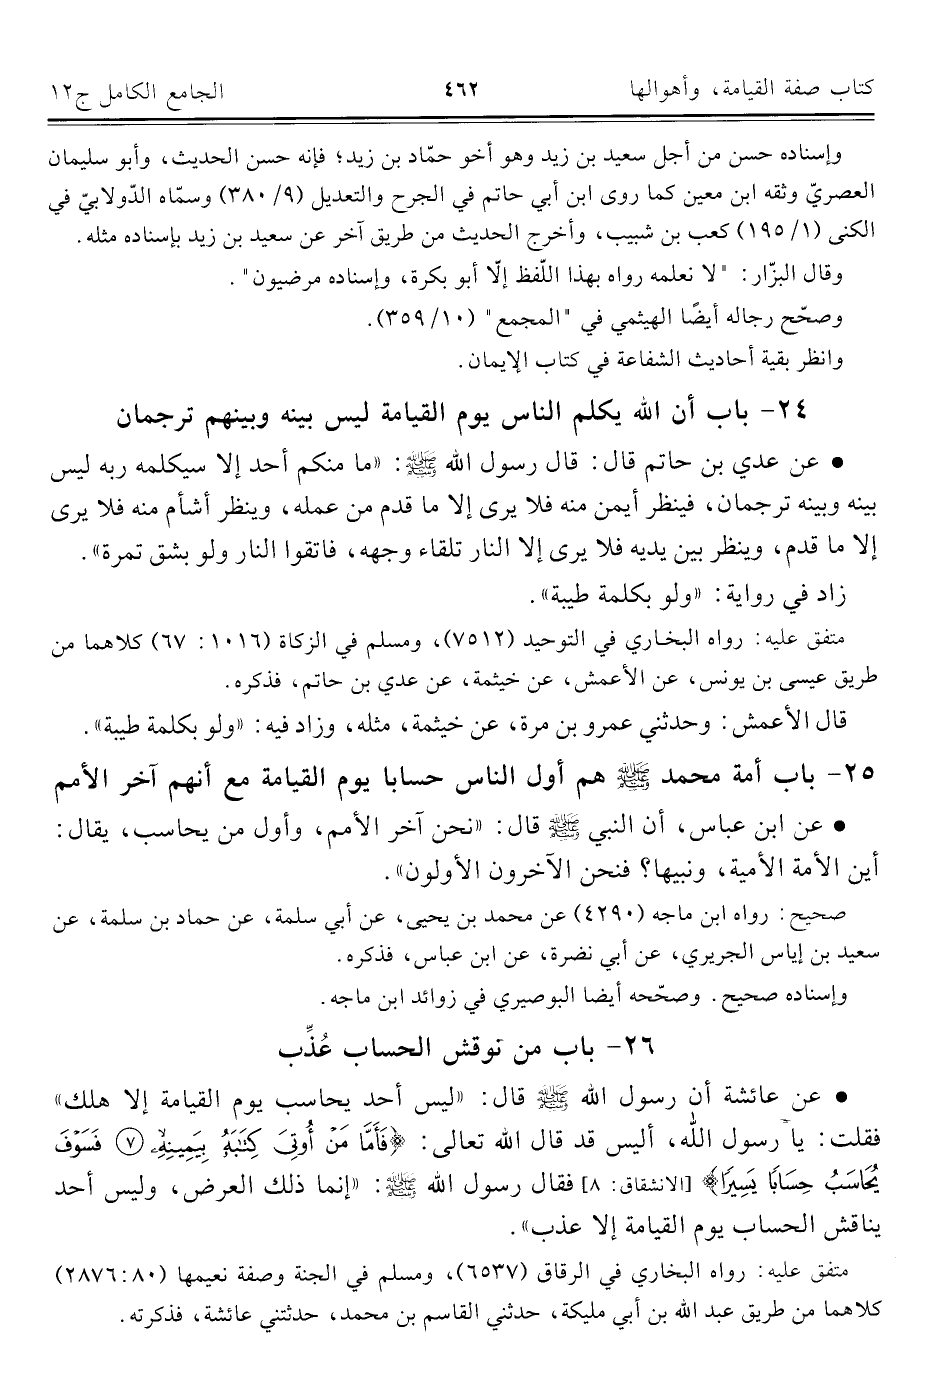 كتاب صفة القيامة، وأهوالها ٤٦٢ الجامع الكامل ج١٢
وإسناده حسن من أجل سعيد بن زيد وهو أخو حمّاد بن زيد؛ فإنه حسن الحديث، وأبو سليمان
العصريّ وثقه ابن معين كما روى ابن أبي حاتم في الجرح والتعديل (٩/ ٣٨٠) وسمّاه الدّولابيّ في
الكنى (١/ ١٩٥) كعب بن شبيب، وأخرج الحديث من طريق آخر عن سعيد بن زيد بإسناده مثله.
وقال البزّار: "لا نعلمه رواه بهذا اللّفظ إلّا أبو بكرة، وإسناده مرضيون".
وصحّح رجاله أيضًا الهيثمي في "المجمع" (١٠/ ٣٥٩).
وانظر بقية أحاديث الشفاعة في كتاب الإيمان.
٢٤- باب أن الله يكلم الناس يوم القيامة ليس بينه وبينهم ترجمان
• عن عدي بن حاتم قال: قال رسول الله ﷺ: «ما منكم أحد إلا سيكلمه ربه ليس
بينه وبينه ترجمان، فينظر أيمن منه فلا يرى إلا ما قدم من عمله، وينظر أشأم منه فلا يرى
إلا ما قدم، وينظر بين يديه فلا يرى إلا النار تلقاء وجهه، فاتقوا النار ولو بشق تمرة».
زاد في رواية: «ولو بكلمة طيبة».
متفق عليه: رواه البخاري في التوحيد (٧٥١٢)، ومسلم في الزكاة (١٠١٦: ٦٧) كلاهما من
طريق عيسى بن يونس، عن الأعمش، عن خيثمة، عن عدي بن حاتم، فذكره.
قال الأعمش: وحدثني عمرو بن مرة، عن خيثمة، مثله، وزاد فيه: «ولو بكلمة طيبة».
٢٥- باب أمة محمد ﷺ هم أول الناس حسابا يوم القيامة مع أنهم آخر الأمم
• عن ابن عباس، أن النبي ﷺ قال: «نحن آخر الأمم، وأول من يحاسب، يقال:
أين الأمة الأمية، ونبيها؟ فنحن الآخرون الأولون».
صحيح: رواه ابن ماجه (٤٢٩٠) عن محمد بن يحيى، عن أبي سلمة، عن حماد بن سلمة، عن
سعيد بن إياس الجريري، عن أبي نضرة، عن ابن عباس، فذكره.
وإسناده صحيح. وصحّحه أيضا البوصيري في زوائد ابن ماجه.
٢٦- باب من نوقش الحساب عُذِّب
• عن عائشة أن رسول الله ﷺ قال: «ليس أحد يحاسب يوم القيامة إلا هلك»
فقلت: يا رسول الله، أليس قد قال الله تعالى: ﴿فَأَمَّا مَنْ أُوتِيَ كِتَٰبَهُۥ بِيَمِينِهِۦ ٧ فَسَوْفَ
يُحَاسَبُ حِسَابًا يَسِيرًا﴾ [الانشقاق: ٨] فقال رسول الله ﷺ: «إنما ذلك العرض، وليس أحد
يناقش الحساب يوم القيامة إلا عذب».
متفق عليه: رواه البخاري في الرقاق (٦٥٣٧)، ومسلم في الجنة وصفة نعيمها (٢٨٧٦:٨٠)
كلاهما من طريق عبد الله بن أبي مليكة، حدثني القاسم بن محمد، حدثتني عائشة، فذكرته.